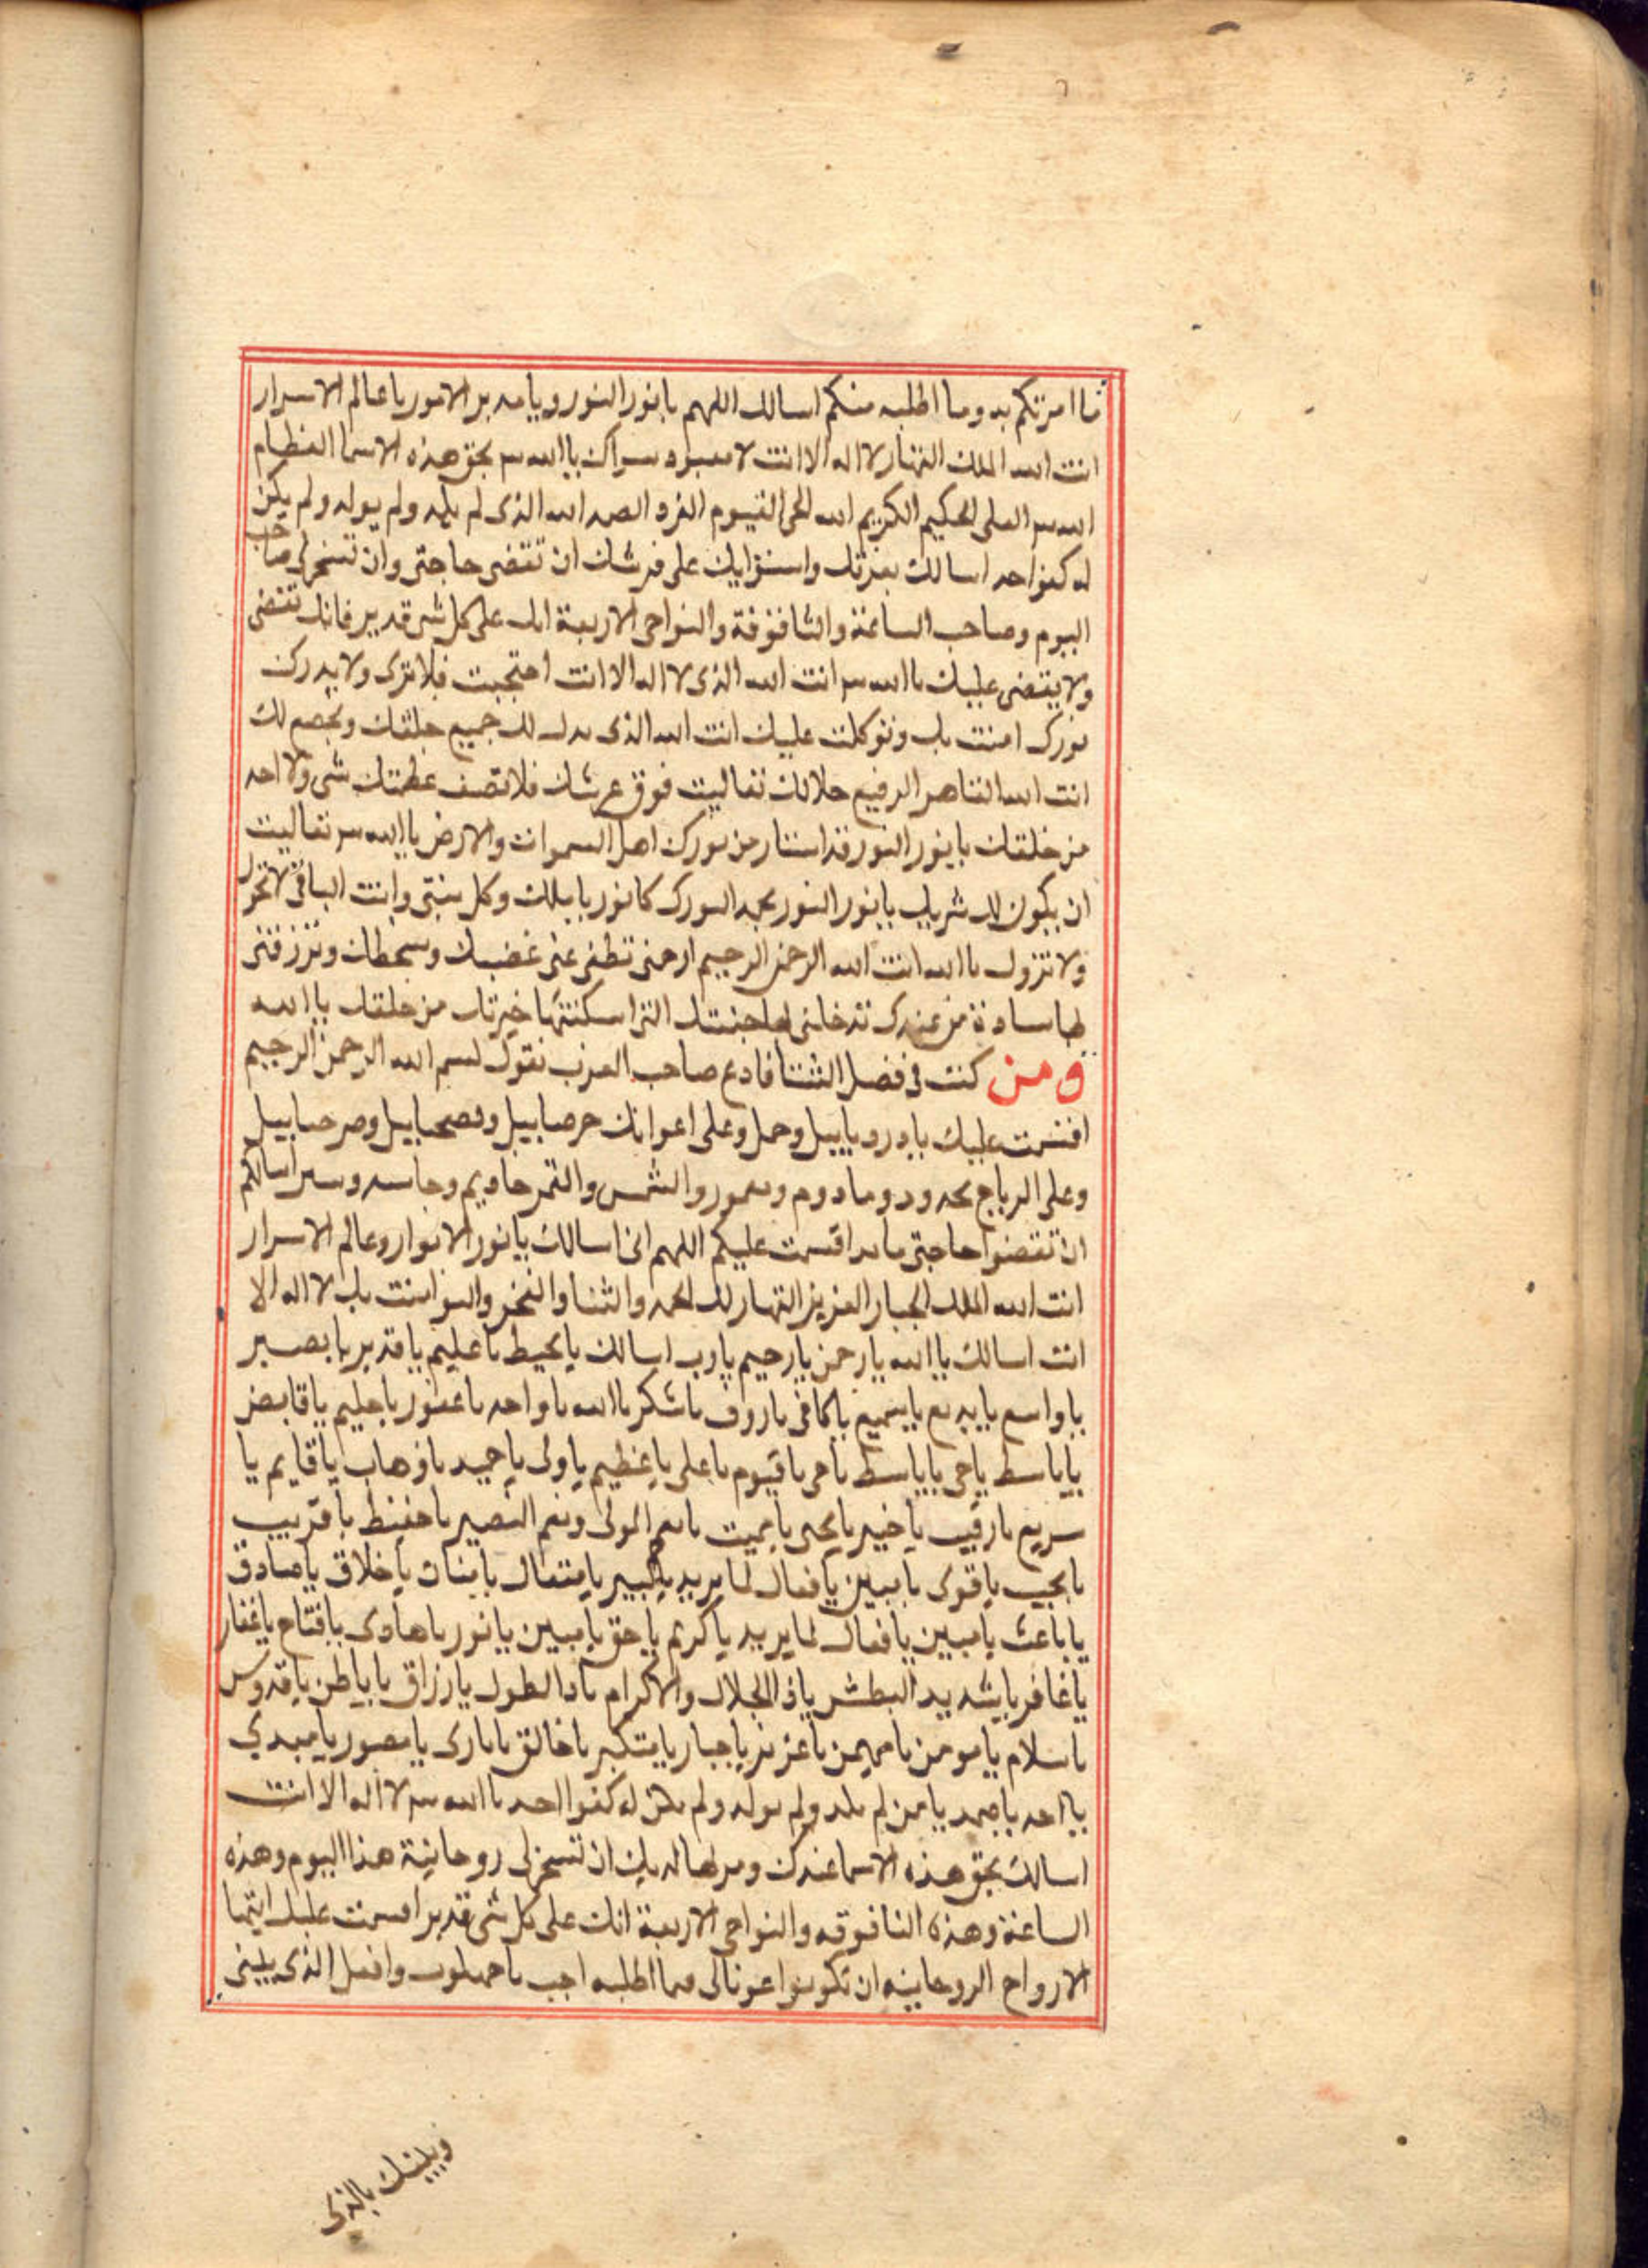 ما امرتكم به وما اطلبه منكم اسالك اللهم يا نور النور ويا مدبر الامور يا عالم الاسرار
انت الله الملك القهار لا اله الا انت لا معبود سواك يا الله بحق هذه الاسما العظام
الله العلى الحكيم الكريم الله الحى القيوم الفرد الصمد الله الذى لم يلد ولم يولد ولم يكن
له كفوا احد اسالك بعزتك واستوايك على عرشك ان تقضى حاجتى وان تسخر لى صاحب
اليوم وصاحب الساعة والثافوفة والنواحى الاربعة انك على كل شى قدير فانك تقضى
ولا يقضى عليك يا الله انت الله الذى لا اله الا انت احتجبت فلا ترى ولا يدرك
نورك امنت بك وتوكلت عليك انت الله الذى يذل لك جميع خلقك ويخضع لك
انت الله القاهر الرفيع جلالك تعاليت فوق عرشك فلا تصف عظمتك شى ولا احد
من خلقك يا نور النور قد استنار من نورك اهل السموات والارض يا الله تعاليت
ان يكون لك شريك يا نور النور نورك كل نور وانت الباقى لا تحول
ولا تزول يا الله انت الله الرحمن الرحيم ارحمنى تطفى عنى غضبك وسخطك وترزقنى
من عندك تدخلنى بها جنتك التى اسكنتها خيرتك من خلقك يا الله
ومن كنت فى فضل الشتا فادع صاحب العزب تقول بسم الله الرحمن الرحيم
اقسمت عليك يا دردياييل وحمل وعلى اعوانك حرصاييل وفصحاييل وصرصاييل
وعلى الرياح ودوما دوم والشمس والقمر اسالكم
ان تقضوا حاجتى ما به اقسمت عليكم اللهم انى اسالك يا نور الانوار وعالم الاسرار
انت الله الملك الجبار العزيز القهار لك الحمد والثنا والفخر امنت بك لا اله الا
انت اسالك يا الله يا رحمن يا رحيم يا رب اسالك يا محيط يا عليم يا قدير يا بصير
يا واسع يا بديع يا سميع يا كافى يا روف يا شكر يا الله يا واحد يا غفور يا حليم يا قابض
يا باسط يا حى يا باسط يا حى يا قيوم يا على يا عظيم يا ولى يا حميد يا وهاب يا قايم يا
سريع يا رقيب يا خبير يا محيى يا مميت يا نعم المولى ونعم النصير يا حفيظ يا قريب
يا مجيب يا قوى يا مبين يا فعال لما يريد يا كبير يا متعال يا منان يا خلاق يا صادق
يا باعث يا مبين يا فعال لما يريد يا كريم يا حق يا مبين يا نور يا هادى يا فتاح يا غفار
يا غافر يا شديد البطش يا ذا الجلال والاكرام يا ذا الطول يا رزاق يا باطن يا قدوس
يا سلام يا مومن يا مهيمن يا عزيز يا جبار يا متكبر يا خالق يا بارى يا مصور يا مبدي
يا احد يا صمد يا من لم يلد ولم يولد ولم يكن له كفوا احد يا الله لا اله الا انت
اسالك بحق هذه الاسما عندك لديك ان تسخر لى روحانية هذا اليوم وهذه
الساعة وهذه الثافوفه والنواحى الاربعة انك على كل شى قدير اقسمت عليك ايتها
الارواح الروحانيه ان تكونوا عونا لى فيما اطلبه اجب وافعل الذى يلينى
ويلينك بالذى